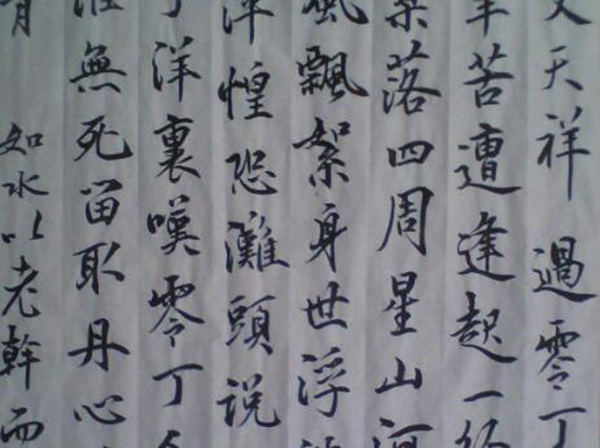 文天祥 過零丁
辛苦遭逢起一經
落四周星山河
風飄絮身世浮
萍惶恐灘頭说
丁洋裏嘆零丁
誰無死留取丹心
如水以老幹而